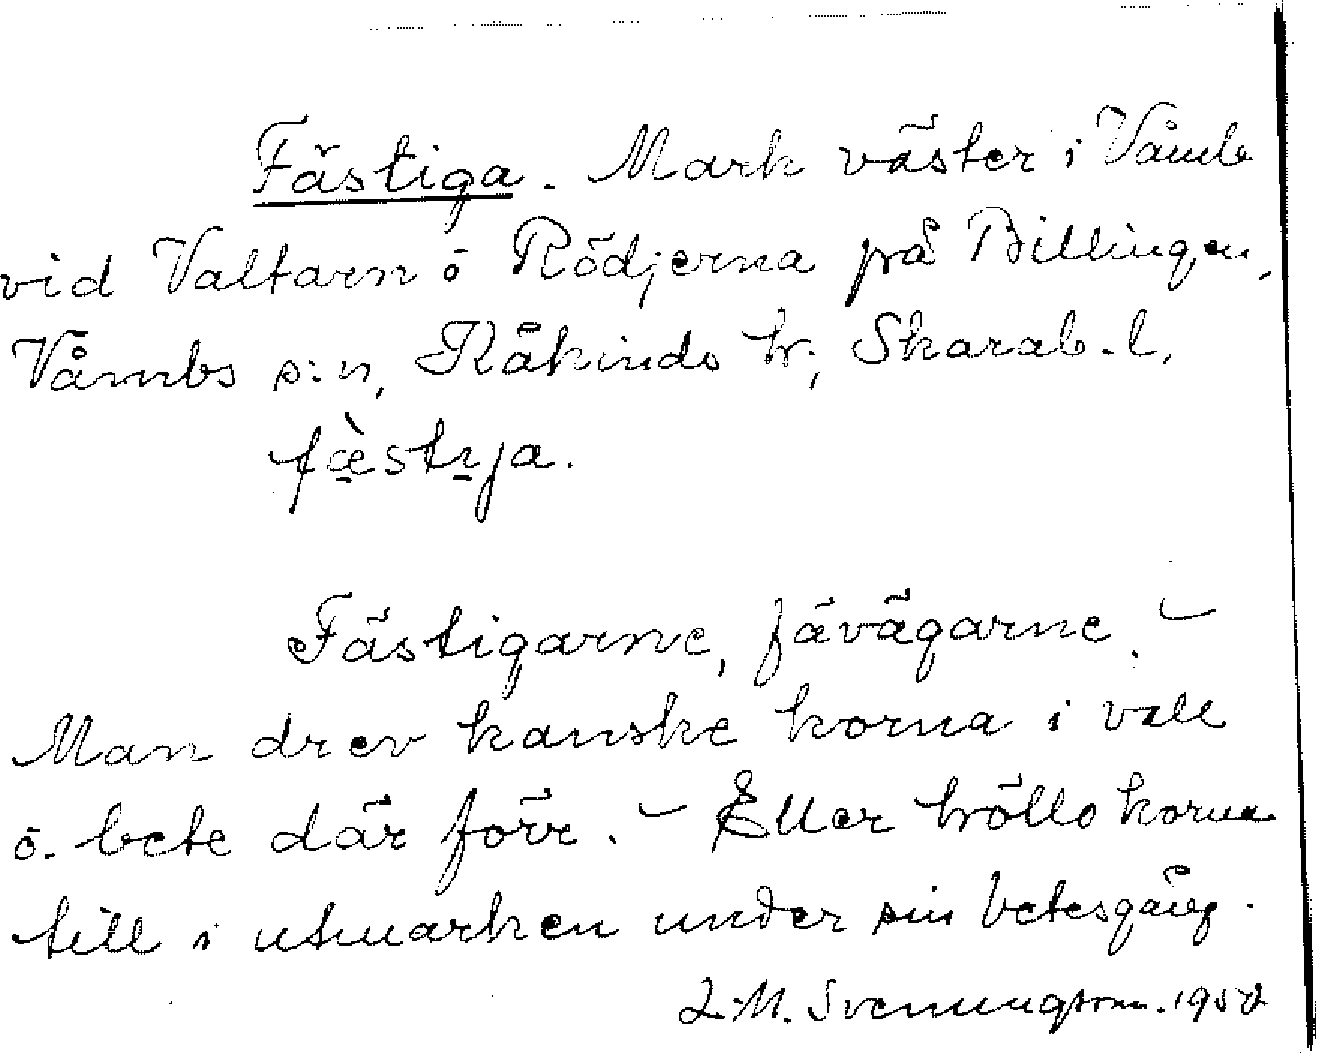 Fästiga. Mark väster i Våmb
vid Valtarn ō Rödjerna på Billingen,
Våmbs s:n, Kåkinds h:, Skarab. l,
fæ̀stıja.
Fästigarne, fävägarne. –
Man drev kanske korna i vall
ō. bete där förr. – Eller höllo korna
till i utmarken under sin betesgång.
L.M. Svenungsson. 1952